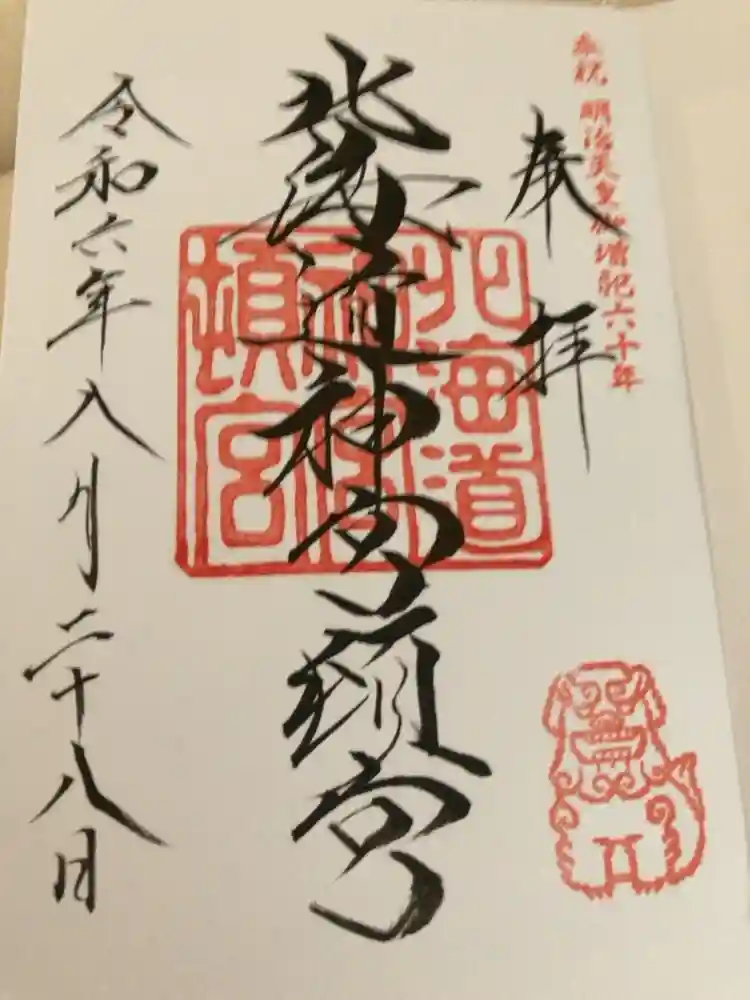 奉祝 明治天皇御増祀六十年
奉拝
北海道神宮頓宮
北海道
神宮
頓宮
令和六年八月二十八日